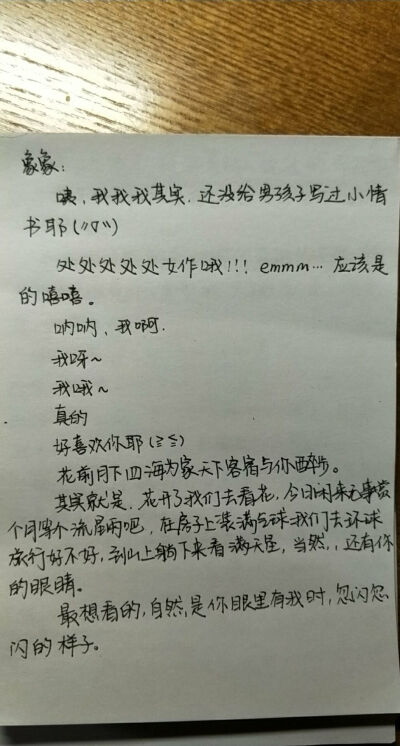 象象：
咦，我我我其实，还没给男孩子写过小情
书耶(//▽//)
处处处处处女作哦!!! emmm… 应该是
的嘻嘻。
呐呐，我啊.
我呀~
我哦~
真的
好喜欢你耶(≥≤)
花前月下四海为家天下客宿与你醉步。
其实就是，花开了我们去看花，今日闲来无事赏
个月等个流星雨吧，在房子上装满气球我们去环球
旅行好不好，到山上躺下来看满天星，当然，还有你
的眼睛。
最想看的，自然，是你眼里有我时，忽闪忽
闪的样子。